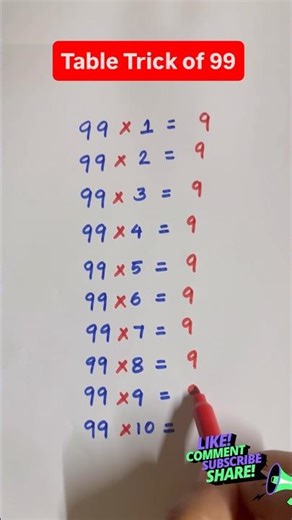 Table Trick of 99
99 × 1 = 9
99 × 2 = 9
99 × 3 = 9
99 × 4 = 9
99 × 5 = 9
99 × 6 = 9
99 × 7 = 9
99 × 8 = 9
99 × 9 =
99 × 10 =
LIKE!
COMMENT
SUBSCRIBE
SHARE!